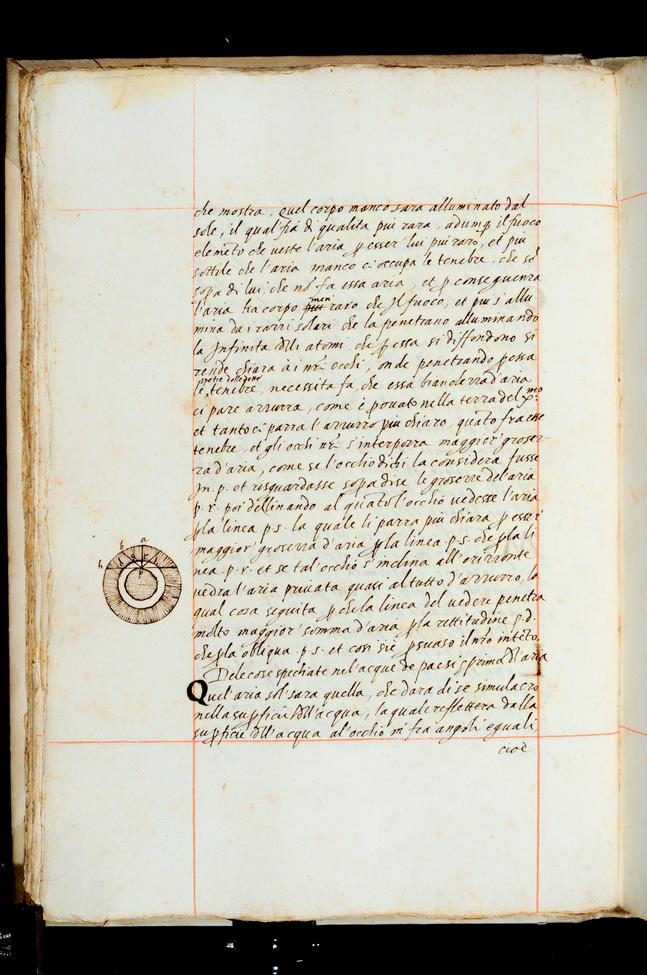 che mostra, quel corpo manco sara alluminato dal
sole, il qual fia di qualita piu rara, adunq̃ il fuoco
elemẽto che ueste l'aria ꝑ esser lui piu raro, et piu
sottile che l'aria manco ci occupa le tenebre, che sõ
sopa di lui che nõ fa essa aria, et ꝑ conseguenza
l'aria corpo men' raro che Il fuoco, et piu s'allu
mina da i razzi solari che la penetrano alluminando
la Infinita delli atomi che ꝑ essa si diffondono si
rende chiara à i nr̃i occhi, onde penetrando ꝑ essa
spetie delle dette
le tenebre, necessita fa, che essa bianchezza d'aria
ci pare azzurra, come è ꝓuato nella terza del xmo
et tanto ci parra l'azzurro piu chiaro, quãto fra esse
tenebre, et gli occhi nr̃i s'interporra maggior' grosez-
za d'aria, come se l'occhio di chi la considera fusse
In .p. et risguardasse sopa di se le grosezze de l'aria
p.r. poi declinando alquãto l'occhio uedesse l'aria
ꝑ la linea p.s. la quale li parra piu chiara ꝑ esser
maggior' grosezza d'aria ꝑ la linea p.s. che ꝑ la li
nea p.r. et se tal' occhio s'inclina all'orizzonte
uedra l'aria priuata quasi al tutto d'azzurro, la
qual cosa seguita ꝑ che la linea del uedere penetra
molto maggior' somma d'aria ꝑ la rettitudine p.d.
che ꝑ la obliqua p.s. et cosi si è ꝑsuaso il nr̃o intẽto.
Dele cose spechiate nel'acque de paesi, et prima de l'aria
Quel'aria sol' sara quella, che dara di se simulacro
nella suꝑficie dell'acqua, la quale reflettera dalla
suꝑficie dell'acqua al'occhio in fra angoli eguali,
cioè
a
b
h
p